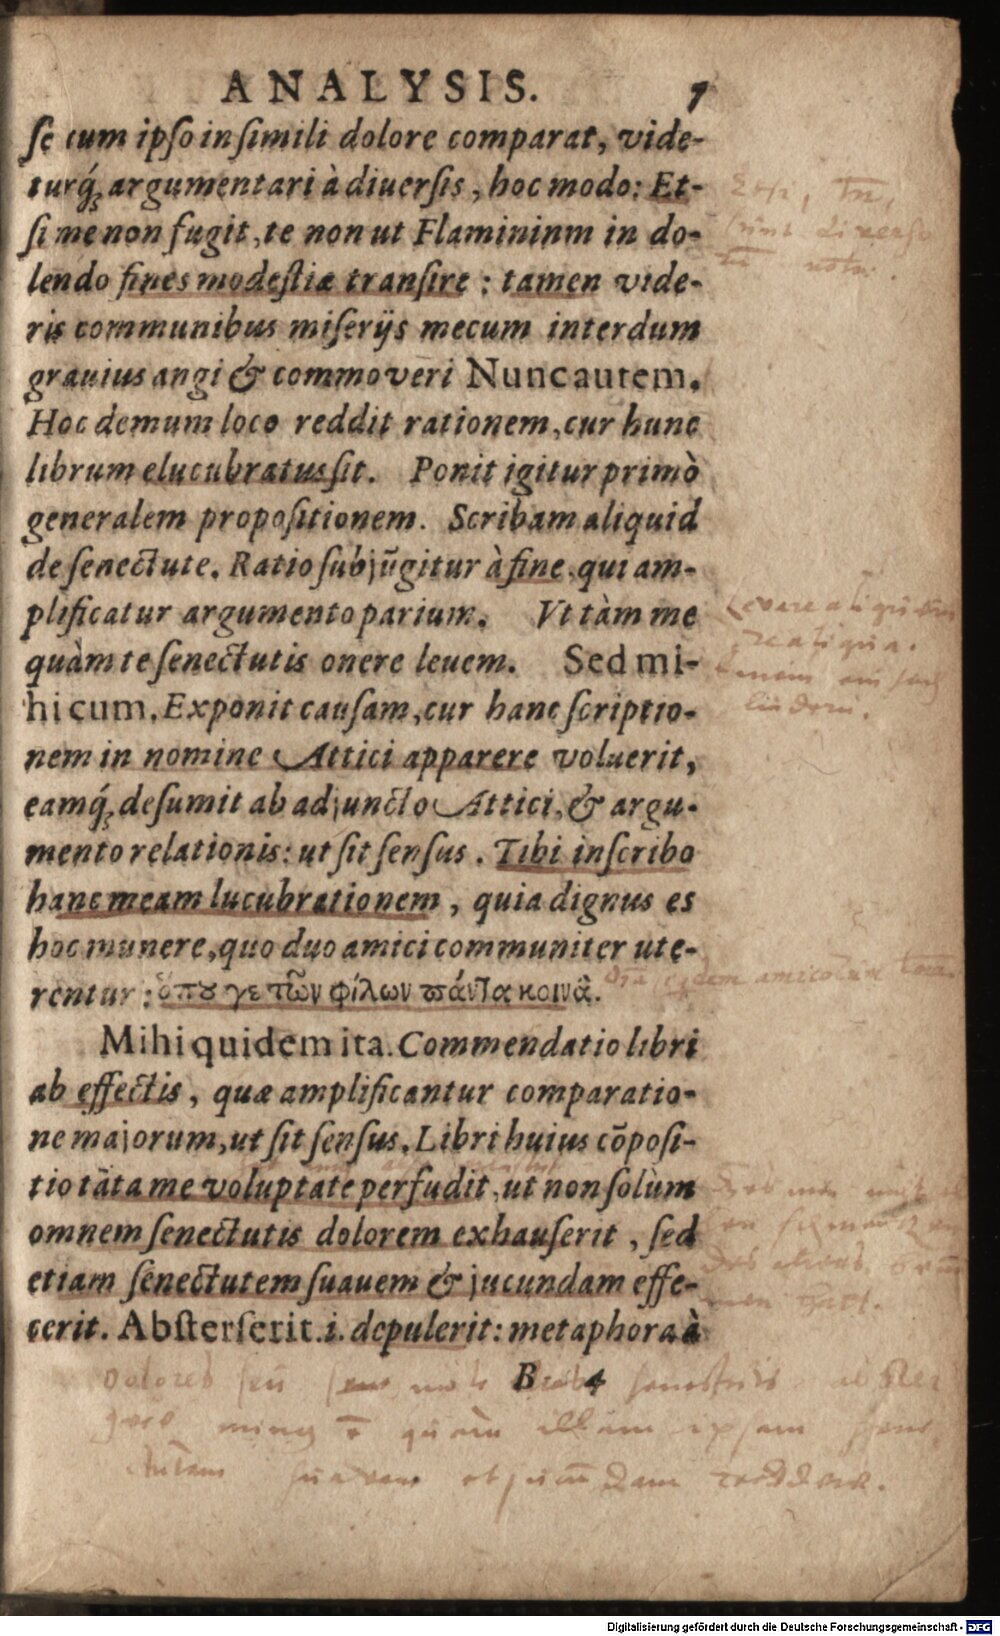 ANALYSIS. 7
ſe cum ipſo in ſimili dolore comparat, vide-
turq́; argumentari à diuerſis, hoc modo: Et-
ſi me non fugit, te non ut Flamininm in do-
lendo fines modeſtiæ tranſire: tamen vide-
ris communibus miſerijs mecum interdum
grauius angi & commoveri Nunc autem.
Hoc demum loco reddit rationem, cur hunc
librum elucubratus ſit. Ponit igitur primò
generalem propoſitionem. Scribam aliquid
de ſenectute. Ratio ſubjũgitur à fine, qui am-
plificatur argumento parium. Vt tàm me
quàm te ſenectutis onere leuem. Sed mi-
hi cum. Exponit cauſam, cur hanc ſcriptio-
nem in nomine Attici apparere voluerit,
eamq́; deſumit ab adjuncto Attici, & argu-
mento relationis: ut ſit ſenſus. Tibi inſcribo
hanc meam lucubrationem, quia dignus es
hoc munere, quo duo amici communiter ute-
rentur: ὅπου γε τῶν φίλων πάντα κοινὰ.
Mihi quidem ita. Commendatio libri
ab effectis, quæ amplificantur comparatio-
ne majorum, ut ſit ſenſus. Libri huius cõpoſi-
tio tãta me voluptate perfudit, ut non ſolùm
omnem ſenectutis dolorem exhauſerit, ſed
etiam ſenectutem ſuauem & jucundam effe-
cerit. Abſterſerit. i. depulerit: metaphora à
B 4
quàm illam ipsam
suavem et jucundam reddere.
Digitalisierung gefördert durch die Deutsche Forschungsgemeinschaft - DFG